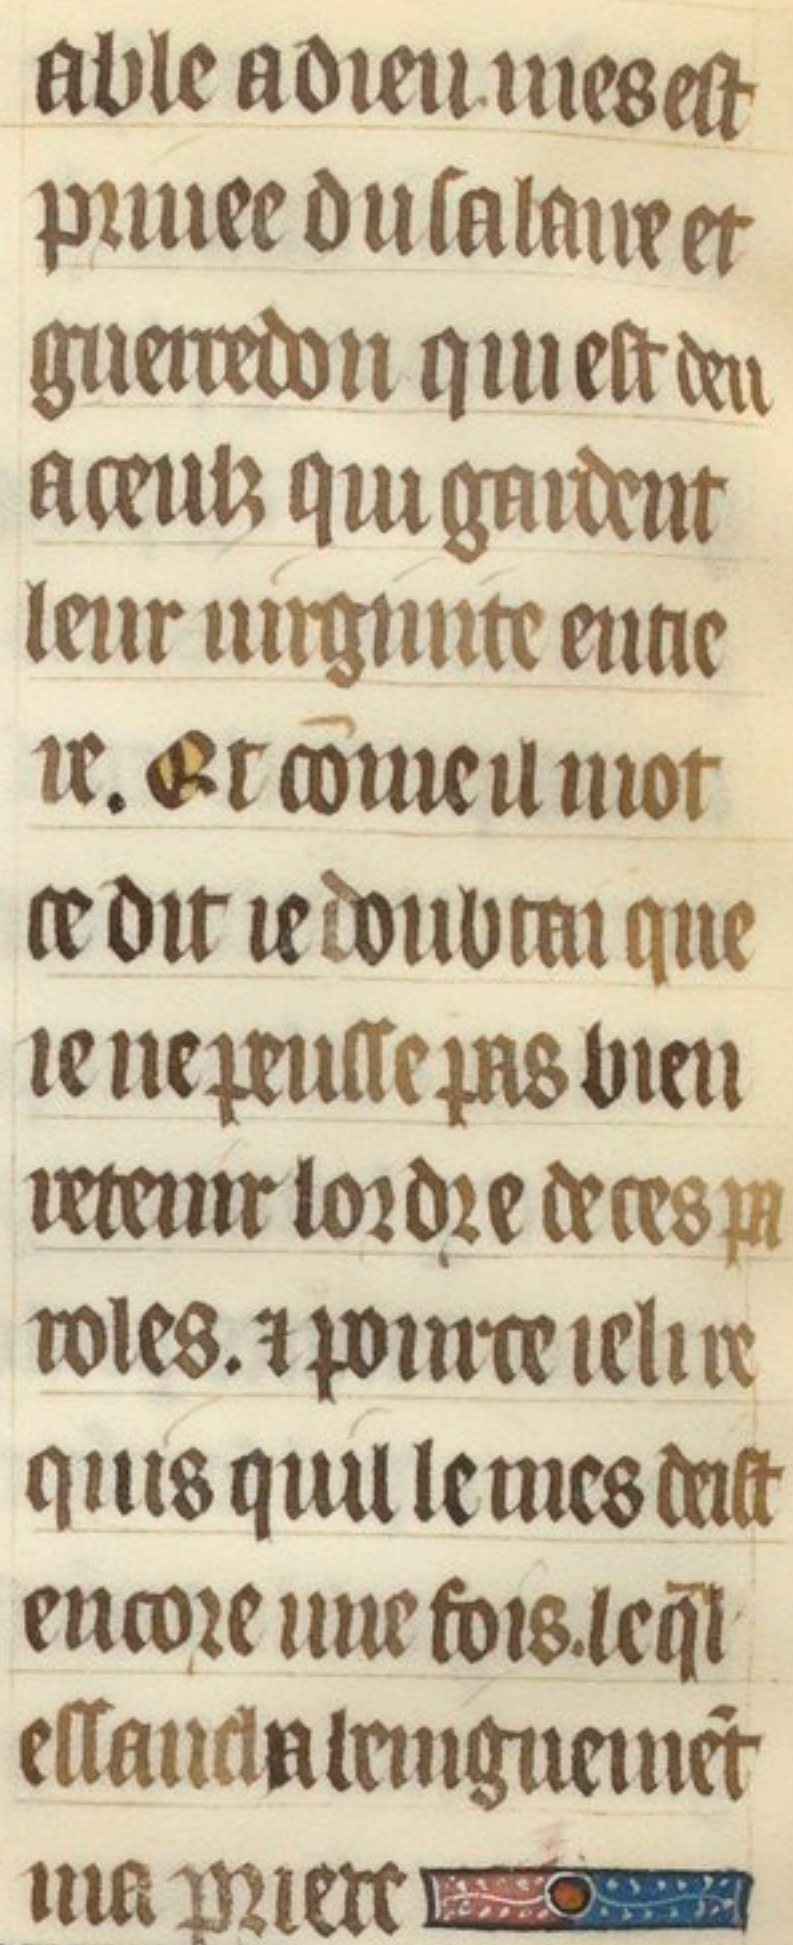 able a dieu. mes est
priuee du salaire et
guerredon qui est deu
a ceulz qui gardent
leur uirginite entie
re. Et cōme il mot
ce dit ie doubtai que
ie ne peusse pas bien
retenir lordre de ces pa
roles. ⁊ pour ce ie li re
quis quil le mes deist
encore une fois. leq̄l
essauca benignemēt
ma priere